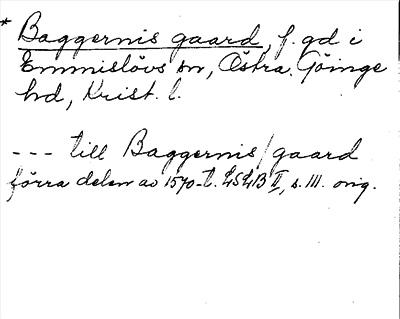 * Baggernis gaard, f. gd i
Emmislövs sn, Östra. Göinge
hd, Krist. l.
--- till Baggernis/gaard
förra delen av 1570-t. LSLB II, s. 111. orig.